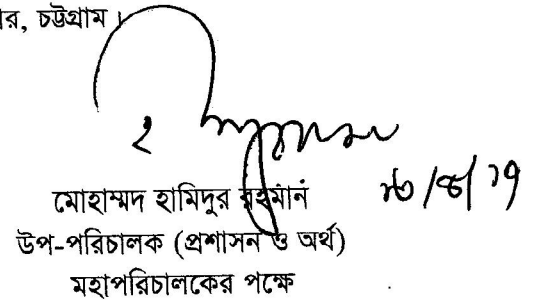 র, চট্টগ্রাম।
মোহাম্মদ হামিদুর রহমান
উপ-পরিচালক (প্রশাসন ও অর্থ)
মহাপরিচালকের পক্ষে